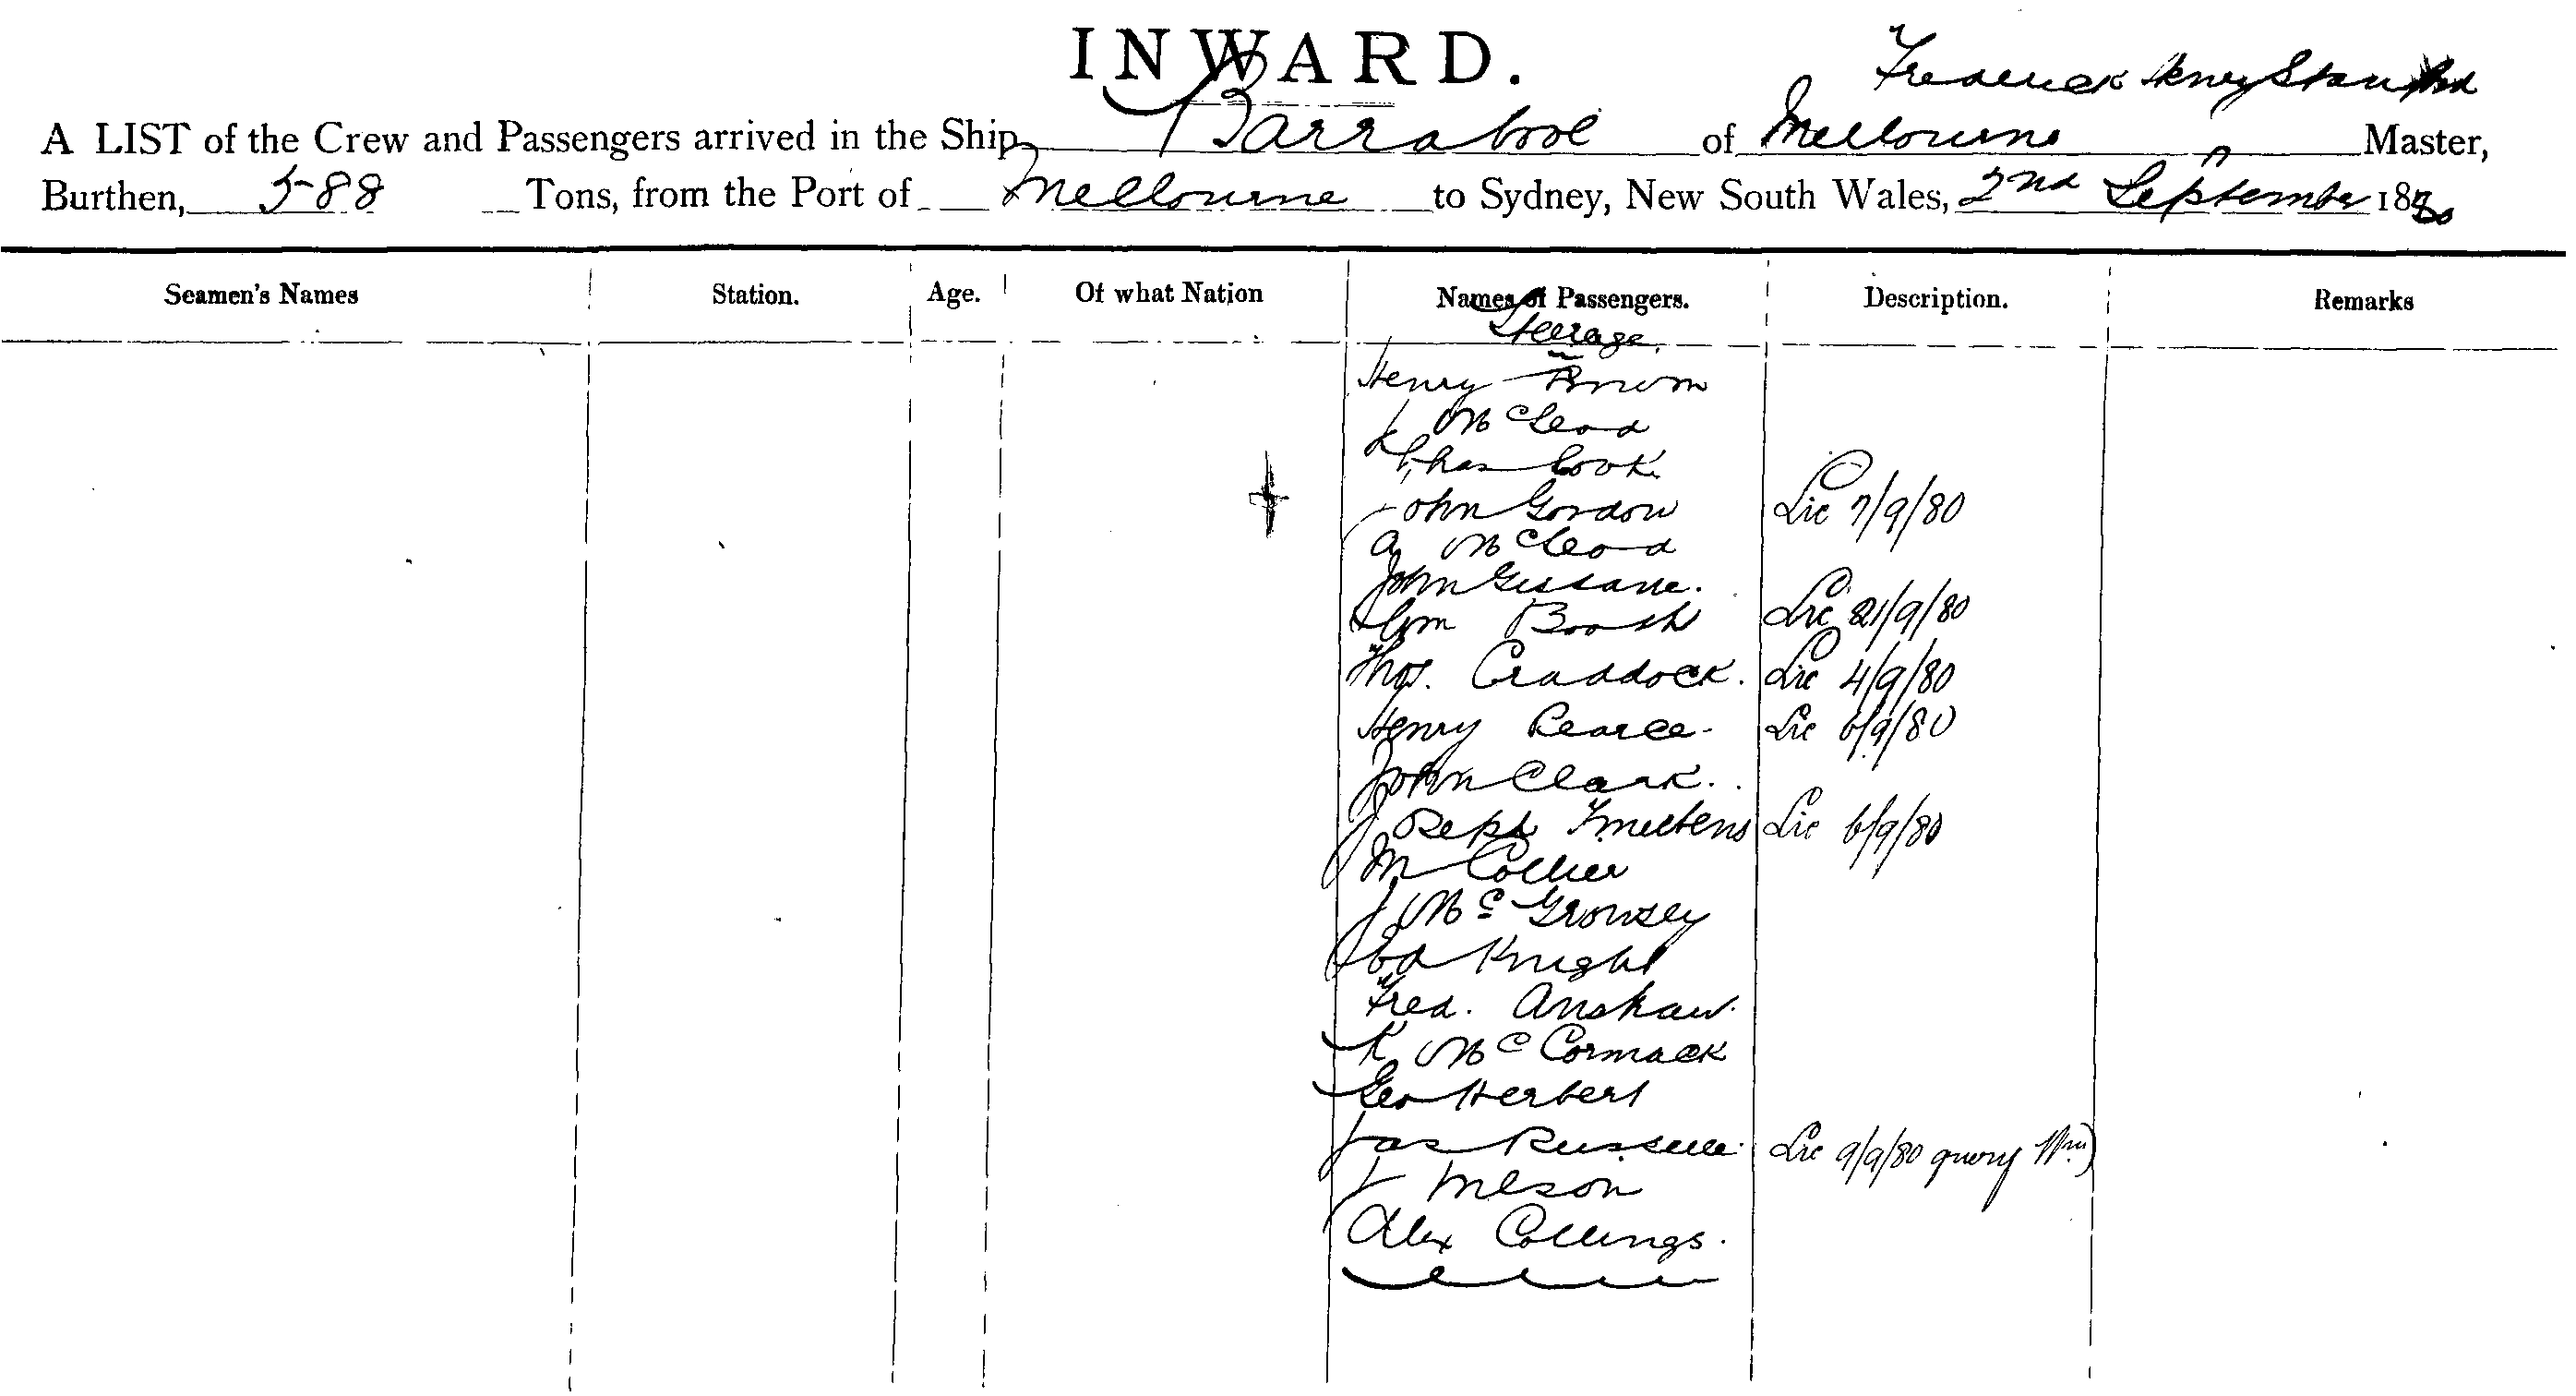 INWARD.
Frederick Henry
A LIST of the Crew and Passengers arrived in the Ship Barrabool of Melbourne Master,
Burthen, 588 Tons, from the Port of Melbourne to Sydney, New South Wales, 2nd September 1880
Seamen's Names Station. Age. Of what Nation Names of Passengers. Description. Remarks
Steerage.
Henry Brown
McLeod
Chas Cook
John Gordon Lic 7/9/80
A McLeod
John Gissane.
Wm Booth Lic 21/9/80
Thos. Craddock. Lic 4/9/80
Henry Pearce Lic 6/9/80
John Clark.
Joseph Lic 6/9/80
M Collier
J Mc
Ed Knight
Fred. Anshaw.
K McCormack
Geo Herbert
Jas Russell Lic 9/9/80 query Wm)
Alex Collings.